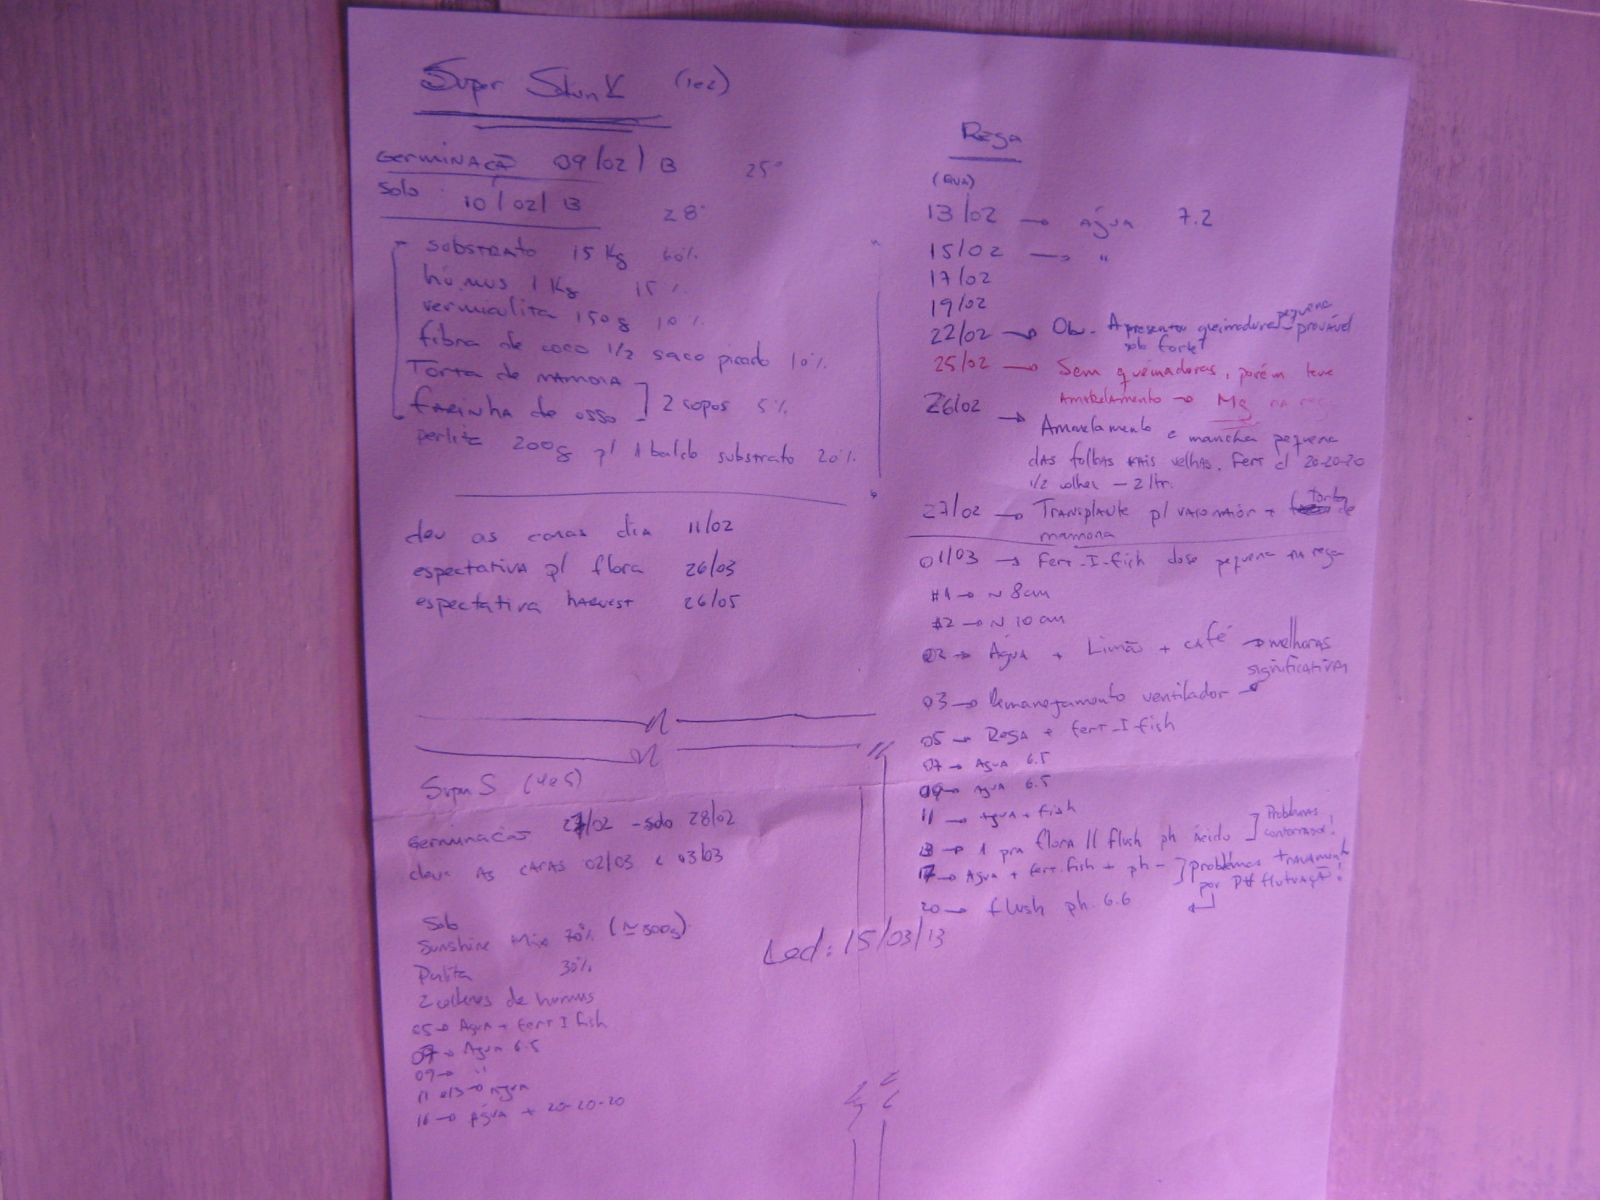 Super Skunk (1e2)
Germinação 09/02/13 25°
solo 10/02/13 28°
substrato 15 Kg 60%
húmus 1 Kg 15%
vermiculita 150g 10%
fibra de coco 1/2 saco picado 10%
Torta de mamona
farinha de osso ] 2 copos 5%
perlita 200g p/ 1 balde substrato 20%
deu as caras dia 11/02
espectativa p/ flora 26/03
espectativa harvest 26/05
Super S (4e5)
Germinação 27/02 - solo 28/02
deu as caras 02/03 e 03/03
Solo
Sunshine Mix 70% (≃500g)
Perlita 30%
2 colheres de húmus
05 → Água + Fert I fish
07 → Água 6.5
09 → "
11 e 13 → Água
16 → Água + 20-20-20
Rega
(qua)
13/02 → água 7.2
15/02 → "
17/02
19/02
22/02 → Obs. Apresentou queimaduras pequena provável
solo forte
25/02 → Sem queimaduras, porém leve
amarelamento → Mg na rega
26/02 → Amarelamento e mancha pequena
das folhas mais velhas. Fert c/ 20-20-20
1/2 colher - 2 ltr.
27/02 → Transplante p/ vaso maior + torta de
mamona
01/03 → Fert-I-fish dose pequena na rega
#1 → ~ 8cm
#2 → ~ 10cm
02 → Água + Limão + café → melhoras
significativas
03 → Remanejamento ventilador
05 → Rega + fert-I-fish
07 → Água 6.5
09 → Água 6.5
11 → Água + fish
13 → 1 pra flora // flush ph ácido ] Problemas
contornados!
17 → Água + fert-fish + ph - ] problemas travamento
por PH flutuação!
20 → flush ph. 6.6
Led: 15/03/13